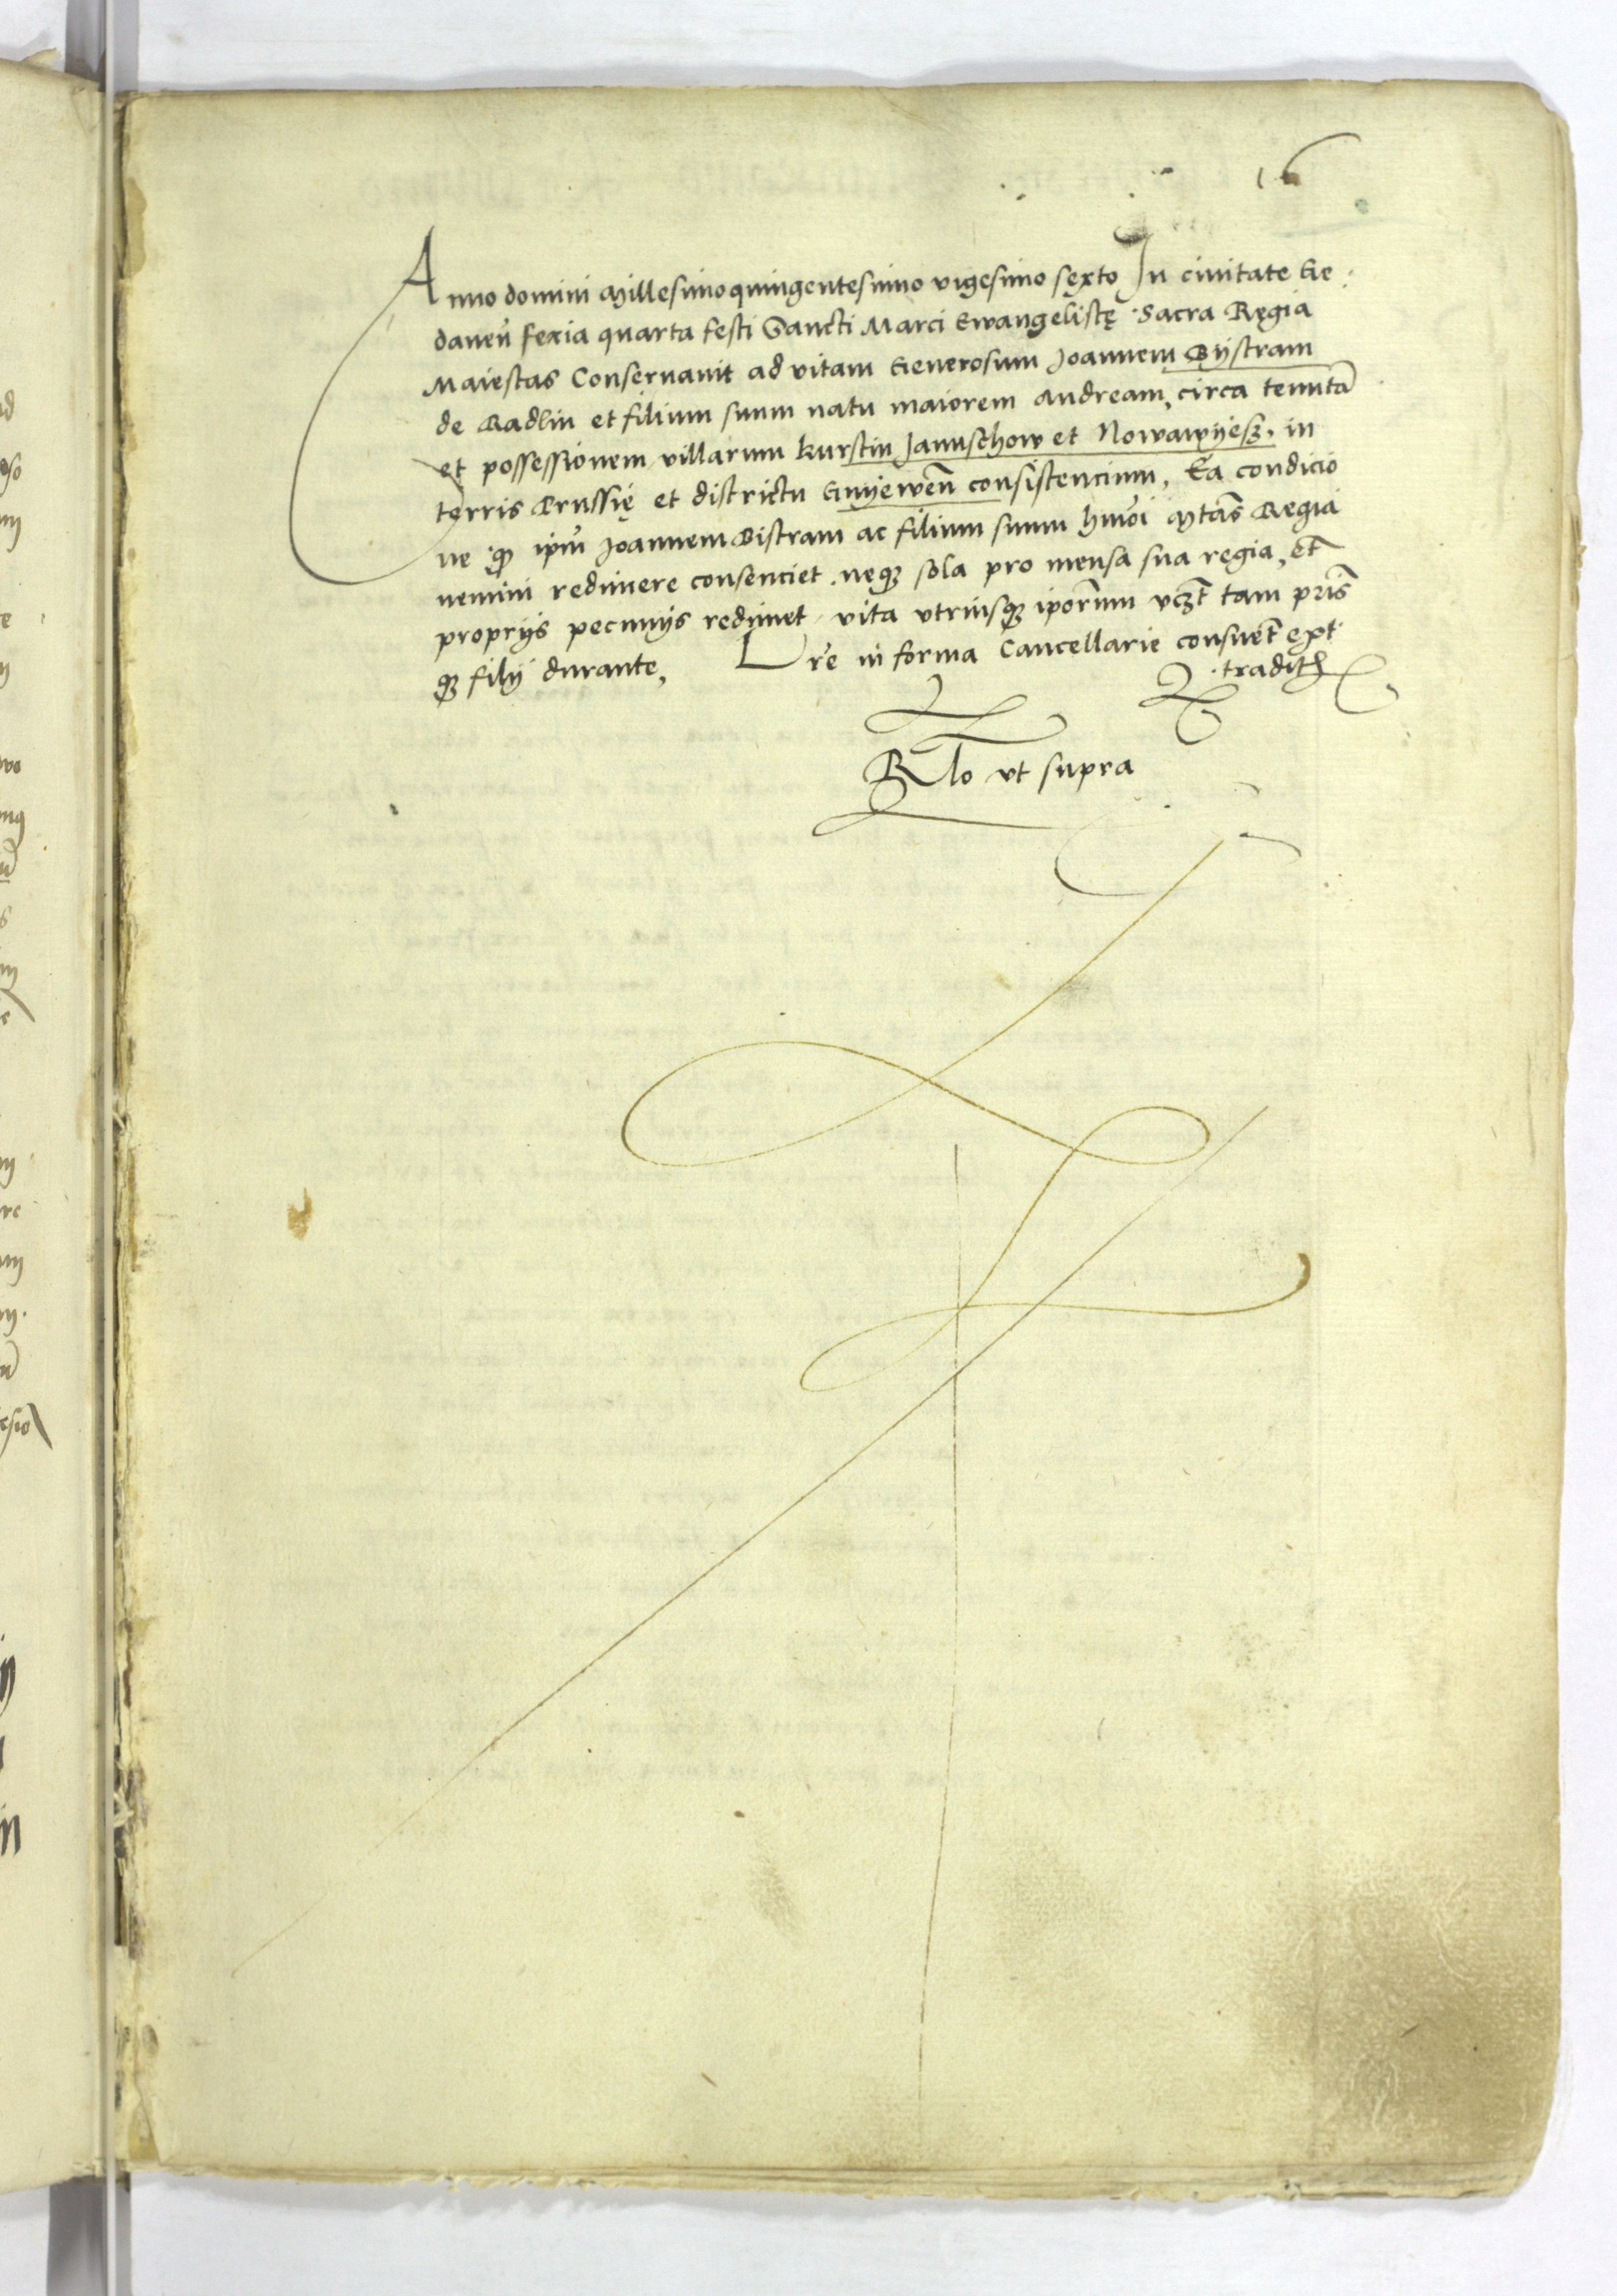 16
Anno domini Millesimoquingentesimo vigesimo sexto In civitate Ge
daneñ feria quarta festi Sancti Marci Ewangelistę Sacra Regia
Maiestas Conservavit ad vitam Generosum Joannem Bystram
de Radlin et filium suum natu maiorem Andream, circa tenutā
et possessionem villarum kurstin Januschow et Nowawyesz, in
terris Prussię et districtu Gnyeweñ consistencium, Ea condicio
ne qꝫ ipm̄ Joannem Bistram ac filium suum hmōi Mtās Regia
nemini redimere consenciet neqꝫ sola pro mensa sua regia, et
proprijs pecunijs redimet vita utriusqꝫ ipōrum vcꝫt tam prīs
qꝫ filij durante, Lrē in forma Cancellarie consuet̄ ext
tradit
Rlo ut supra